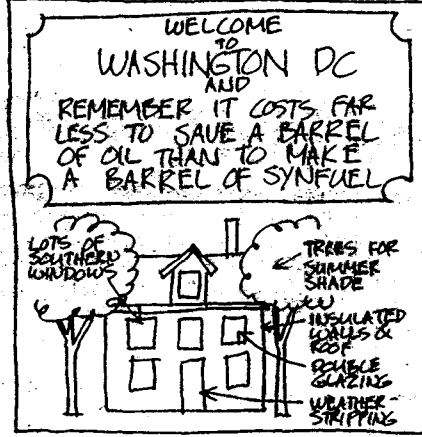 WELCOME
TO
WASHINGTON DC
AND
REMEMBER IT COSTS FAR
LESS TO SAVE A BARREL
OF OIL THAN TO MAKE
A BARREL OF SYNFUEL
LOTS OF
SOUTHERN
WINDOWS
TREES FOR
SUMMER
SHADE
INSULATED
WALLS &
ROOF
DOUBLE
GLAZING
WEATHER-
STRIPPING